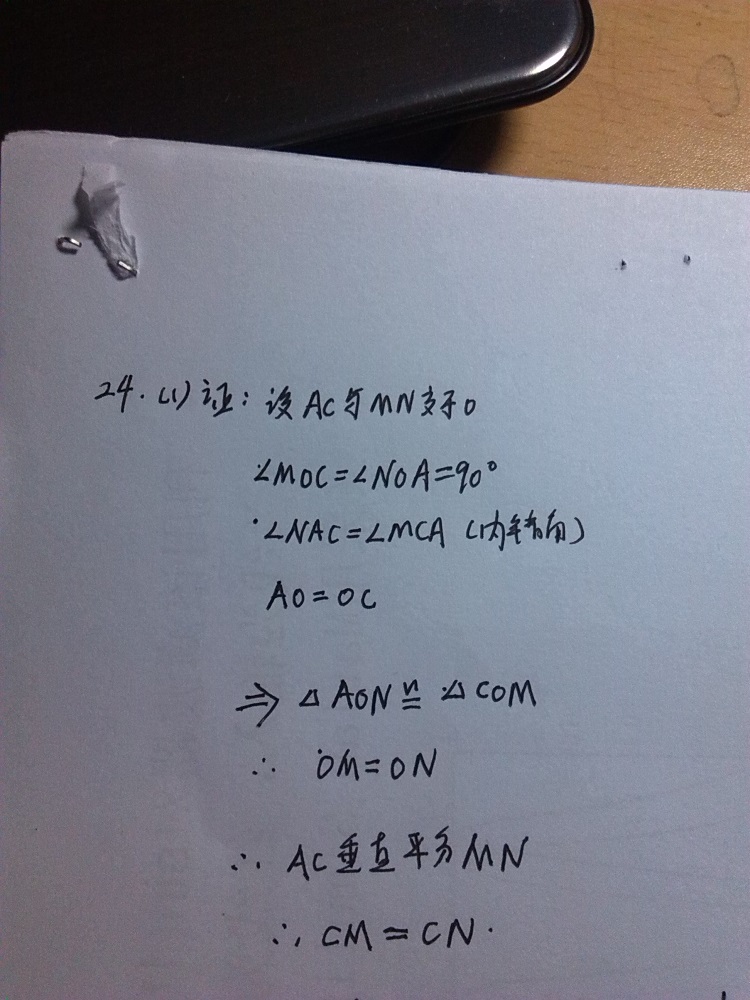 24. (1) 证: 设AC与MN交于O
∠MOC=∠NOA=90°
∠NAC=∠MCA (内错角)
AO=OC
⇒ △AON≌△COM
∴ OM=ON
∴ AC垂直平分MN
∴ CM=CN.